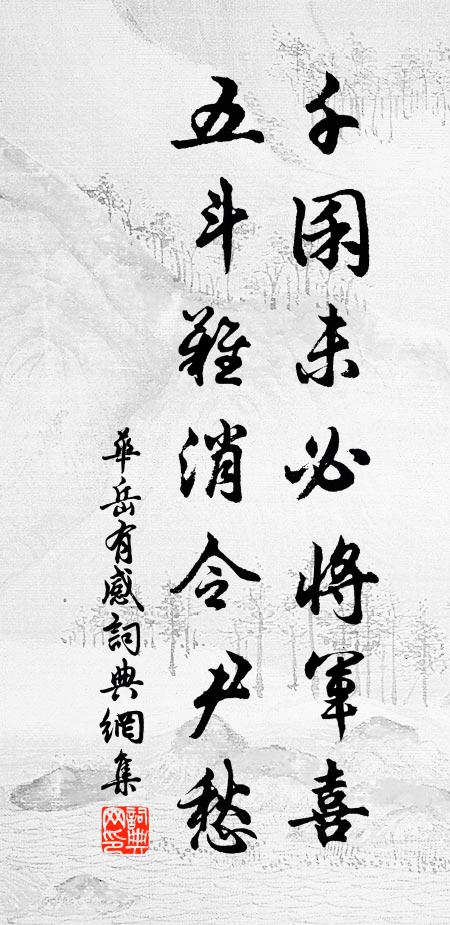 千囷未必將軍喜
五斗難消令尹愁
華岳有感詞典網集
詞典
网印